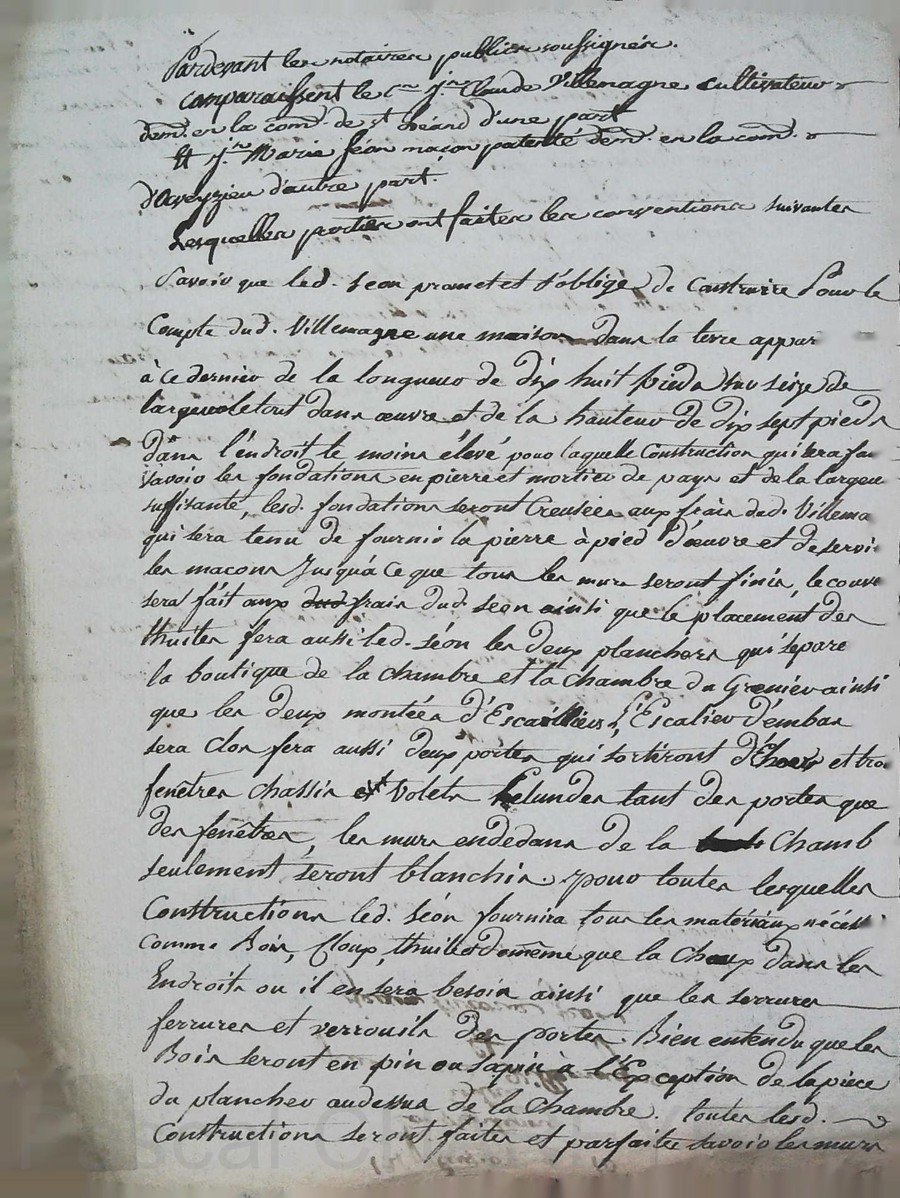 Pardevant les notaires publics soussignés.
comparaissent le c.en j.n Claude Villemagne cultivateur
dem.t en la com.e de st héand d'une part
Et j.n Marie Séon maçon patenté dem.t en la com.e
d'aveyzieu d'autre part.
Lesquelles parties ont faites les conventions suivantes
Savoir que led. Seon promet et s'oblige de Construire Pour le
Compte dud. Villemagne une maison dans la terre appar
à ce dernier de la longueur de dix huit pieds sur seize de
largeur le tout dans œuvre et de la hauteur de dix sept pieds
dans l'endroit le moins élevé pour laquelle Construction qui sera fai
savoir les fondations en pierre et mortier de pays et de la largeu
suffisante, lesd. fondations seront Creusées aux frais dud. Villema
qui sera tenu de fournir la pierre à pied d'œuvre et de servir
les maçons Jusqu'à Ce que tous les murs seront finis, le couve
sera fait aux frais dud. seon ainsi que le placement des
thuiles fera aussi led. séon les deux planchers qui sépare
la boutique de la chambre et la chambre du Grenier ainsi
que les deux montées d'Escailliers, l'Escalier d'embas
sera clos fera aussi deux portes qui sortiront dEhors et tro
fenêtres chassis et Volets tant des portes que
des fenêtres, les murs endedans de la Chamb
seulement seront blanchis. pour toutes lesquelles
Constructions led. séon fournira tous les matériaux nécess
comme Bois, Cloux, thuiles de même que la Chaux dans les
Endroits ou il en sera besoin ainsi que les serrures
ferrures et verrouils des portes. Bien entendu que les
Bois seront en pin ou sapin à l'Exception de la pièce
du plancher audessus de la Chambre. toutes lesd.
Constructions seront faites et parfaites savoir les murs